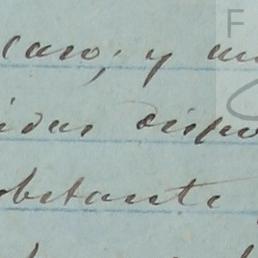 caso; y un
idas dispo
obstante